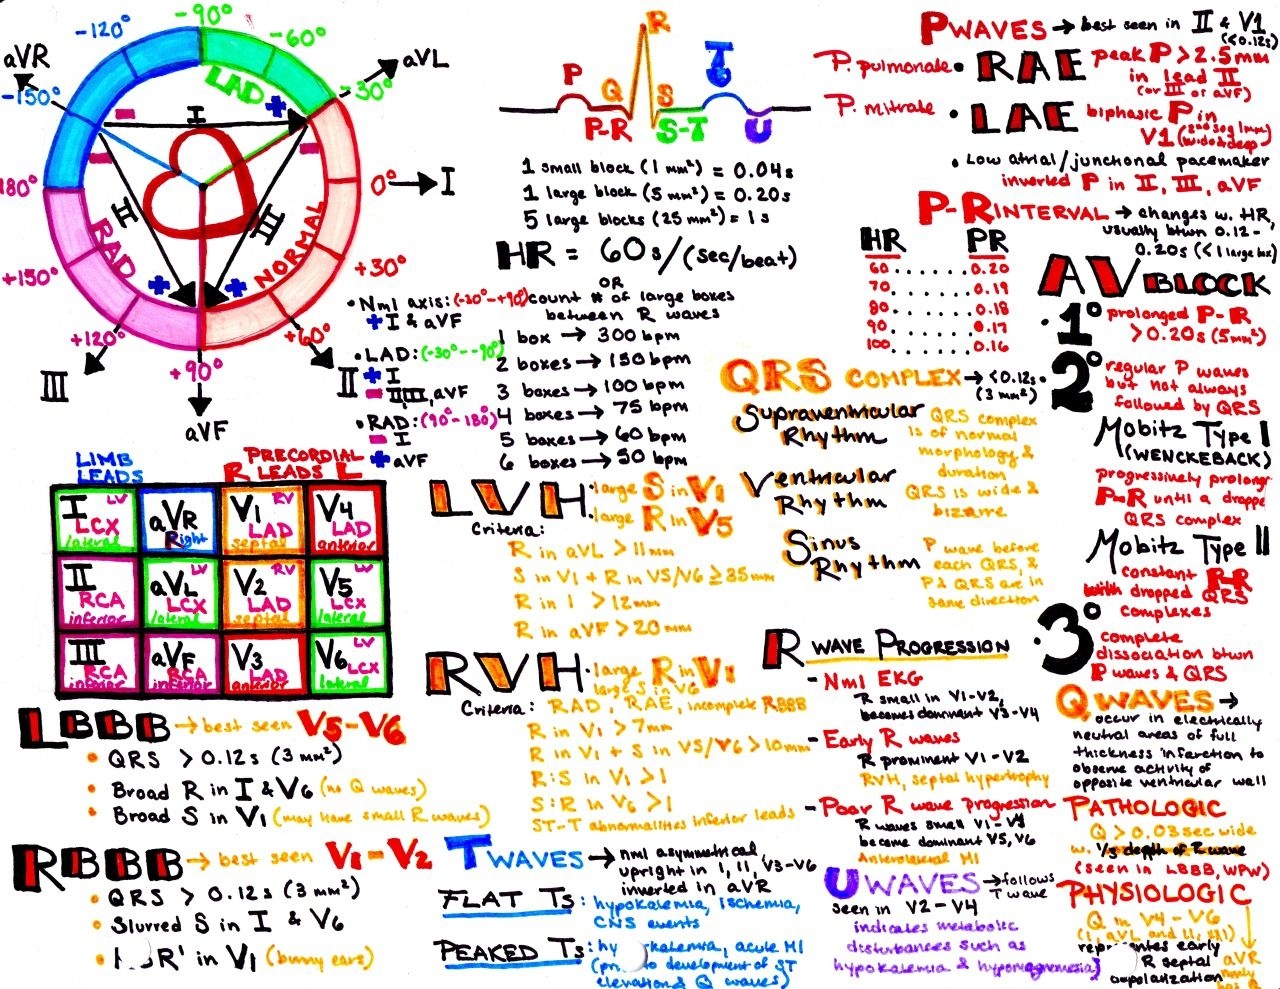 -120°
-90°
-60°
-30°
0°
+30°
+60°
+90°
+120°
+150°
180°
-150°
aVR
aVL
I
II
aVF
III
LAD
NORMAL
RAD
I
II
III
• Nml axis: (-30°-+90°)
+ I & aVF
• LAD: (-30°--90°)
+ I
- II, III, aVF
• RAD: (90°-180°)
- I
+ aVF
P
Q
R
S
T
U
P-R
S-T
1 small block (1 mm²) = 0.04s
1 large block (5 mm²) = 0.20s
5 large blocks (25 mm²) = 1s
HR = 60s/(sec/beat)
OR
count # of large boxes
between R waves
1 box → 300 bpm
2 boxes → 150 bpm
3 boxes → 100 bpm
4 boxes → 75 bpm
5 boxes → 60 bpm
6 boxes → 50 bpm
P WAVES → best seen in II & V1
(<0.12s)
P. pulmonale • RAE peak P > 2.5mm
in lead II
(or III or aVF)
P. mitrale • LAE biphasic P in
V1 (2nd seg 1mm
wide & deep)
• Low atrial/junctional pacemaker
inverted P in II, III, aVF
P-R INTERVAL → changes w. HR,
usually btwn 0.12-
0.20s (<1 large box)
HR PR
60.......0.20
70.......0.19
80.......0.18
90.......0.17
100......0.16
AV BLOCK
• 1° prolonged P-R
> 0.20s (5mm²)
• 2° regular P waves
but not always
followed by QRS
Mobitz Type I
(WENCKEBACK)
progressively prolongr
P-R until a droppe
QRS complex
Mobitz Type II
constant P-R
with dropped QRS
complexes
• 3° complete
dissociation btwn
P waves & QRS
QRS COMPLEX → <0.12s
(3 mm²)
Supraventricular
Rhythm
QRS complex
is of normal
morphology &
duration
Ventricular
Rhythm
QRS is wide &
bizarre
Sinus
Rhythm
P wave before
each QRS, &
P & QRS are in
same direction
LIMB
LEADS
PRECORDIAL
R LEADS L
I LV
LCX
lateral
aVR
Right
V1 RV
LAD
septal
V4
LAD
anterior
II
RCA
inferior
aVL LV
LCX
lateral
V2 RV
LAD
septal
V5 LV
LCX
lateral
III
RCA
inferior
aVF
RCA
inferior
V3
LAD
anterior
V6 LV
LCX
lateral
LVH • large S in V1
• large R in V5
Criteria:
R in aVL > 11mm
S in V1 + R in V5/V6 ≥ 35mm
R in I > 12mm
R in aVF > 20mm
RVH • large R in V1
large S in V6
Criteria: RAD, RAE, incomplete RBBB
R in V1 > 7mm
R in V1 + S in V5/V6 > 10mm
R:S in V1 > 1
S:R in V6 > 1
ST-T abnormalities inferior leads
LBBB → best seen V5-V6
• QRS > 0.12s (3 mm²)
• Broad R in I & V6 (no Q waves)
• Broad S in V1 (may have small R waves)
RBBB → best seen V1-V2
• QRS > 0.12s (3 mm²)
• Slurred S in I & V6
• R' in V1 (bunny ears)
T WAVES → nml asymmetrical,
upright in I, II, V3-V6
inverted in aVR
FLAT Ts: hypokalemia, ischemia,
CNS events
PEAKED Ts: hy kalemia, acute MI
(pr to development of ST
elevation & Q waves)
R WAVE PROGRESSION
- Nml EKG
R small in V1-V2,
becomes dominant V3-V4
- Early R waves
R prominent V1-V2
RVH, septal hypertrophy
- Poor R wave progression
R waves small V1-V4
become dominant V5, V6
Anterolateral MI
U WAVES → follows
T wave
seen in V2-V4
indicates metabolic
disturbances such as
hypokalemia & hypomagnesemia
Q WAVES →
occur in electrically
neutral areas of full
thickness infarction to
observe activity of
opposite ventricular wall
PATHOLOGIC
Q > 0.03 sec wide
w. 1/3 depth of R wave
(seen in LBBB, WPW)
PHYSIOLOGIC
Q in V4-V6
represents early
R septal
depolarization
aVR